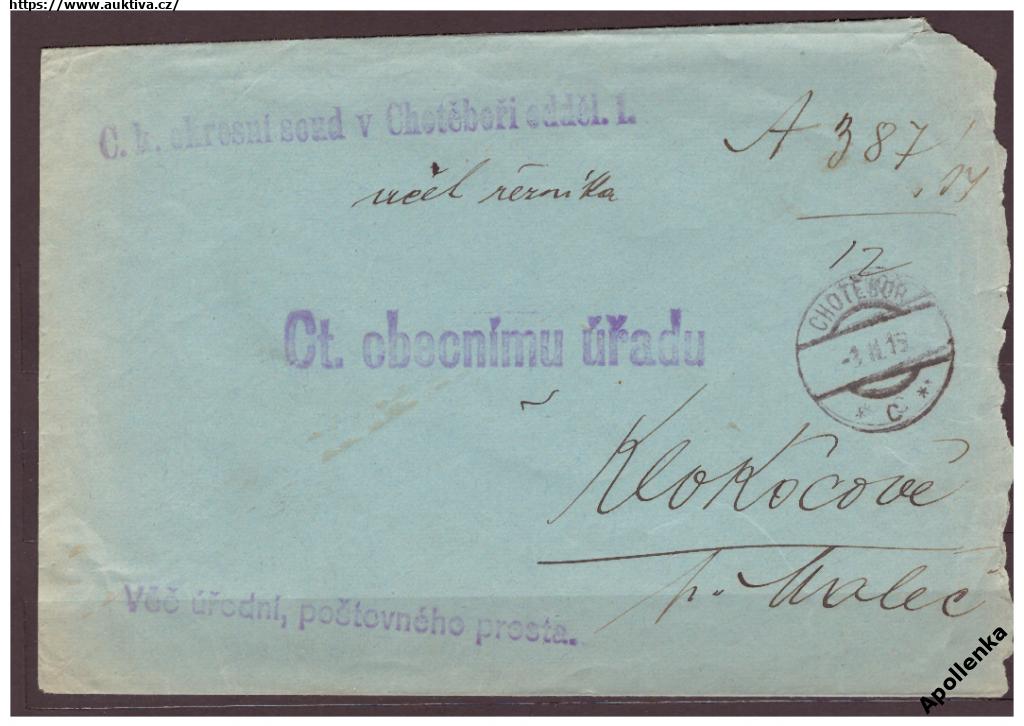 https://www.auktiva.cz/
C. k. okresní soud v Chotěboři odděl. I.
A 387/
12
účel řezníka
CHOTĚBOŘ
-1 II.15
* c *
Ct. obecnímu úřadu
v
Klokočově
p. Maleč
Věč úřední, poštovného prosta.
Apollenka